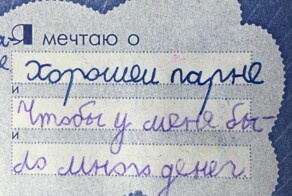 Я мечтаю о
Хорошеи парне
и
Чтобы у меня бы-
и
ло много денег